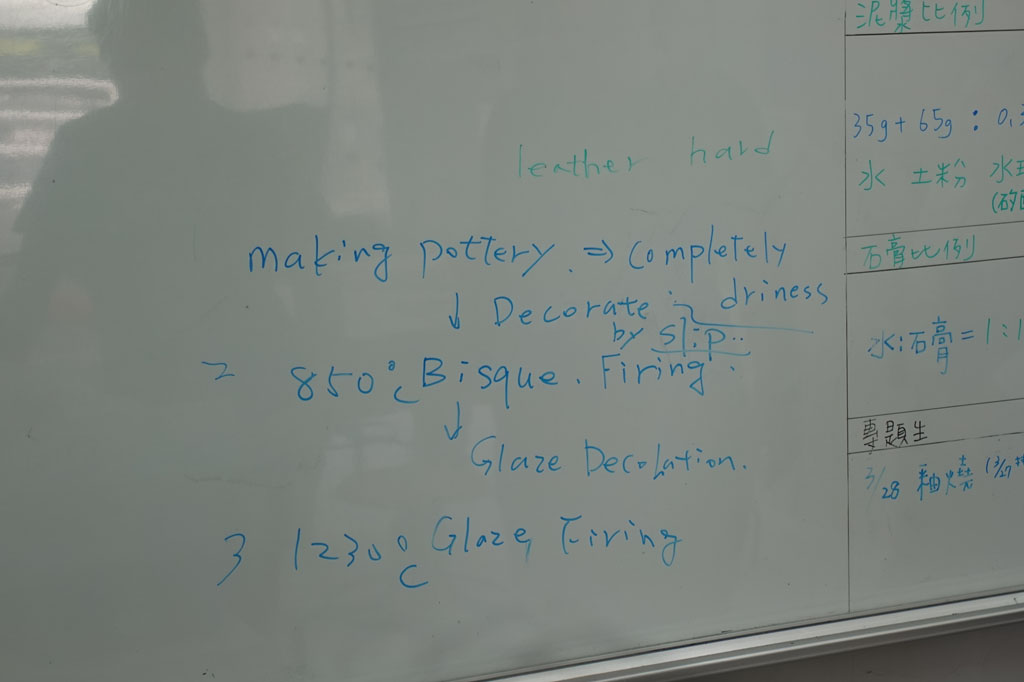 leather hard
making pottery. ⇒ completely
driness
↓ Decorate
by slip..
2 850°C Bisque. Firing.
↓
Glaze Decolation.
3 1230°C Glaze Firing
泥漿比例
35g + 65g : 0.
水 土粉 水
石膏比例
水:石膏 = 1:1
專題生
3/28 釉燒